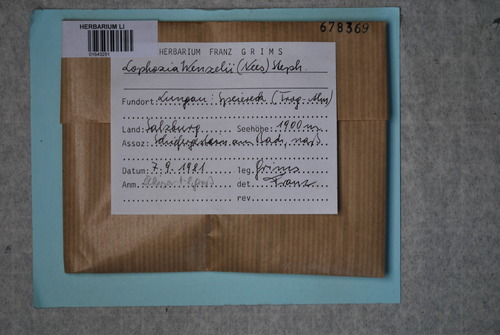 HERBARIUM LI
678369
HERBARIUM FRANZ GRIMS
Lophozia Wenzelii (Nees) Steph.
Fundort: Lungau: Speiereck
Land: Salzburg Seehöhe: 1900 m
Assoz: am Bach, naß
Datum: 7.9.1981 leg. Grims
Anm. det. Franz
rev.